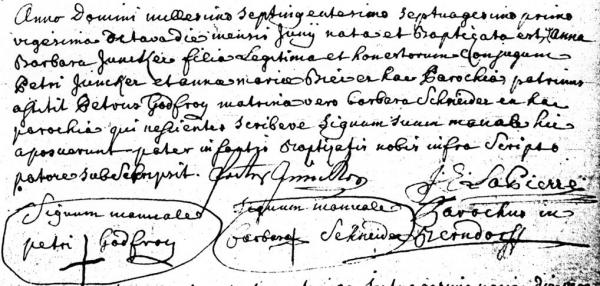 Anno Domini millesimo septingentesimo septuagesimo primo
vigesima octava die mensis Junij nata et baptizata est, Anna
Barbara Juncker filia Legitima et honestorum Conjugum
Petri Juncker et annae mariae Breier hac Parochia petrinus
astitit Petrus Godfroy matrina vero barbera Schneider ex hac
parochia qui nescientes scribere Signum suum manale hic
aposuerunt pater infantis baptizatis nobis infra Scripto
patore subscripsit.
J. E. LaPierre
Parochus in
Berndorff
Signum manuale
petri Godfroy
Signum manuale
barbera Schneider